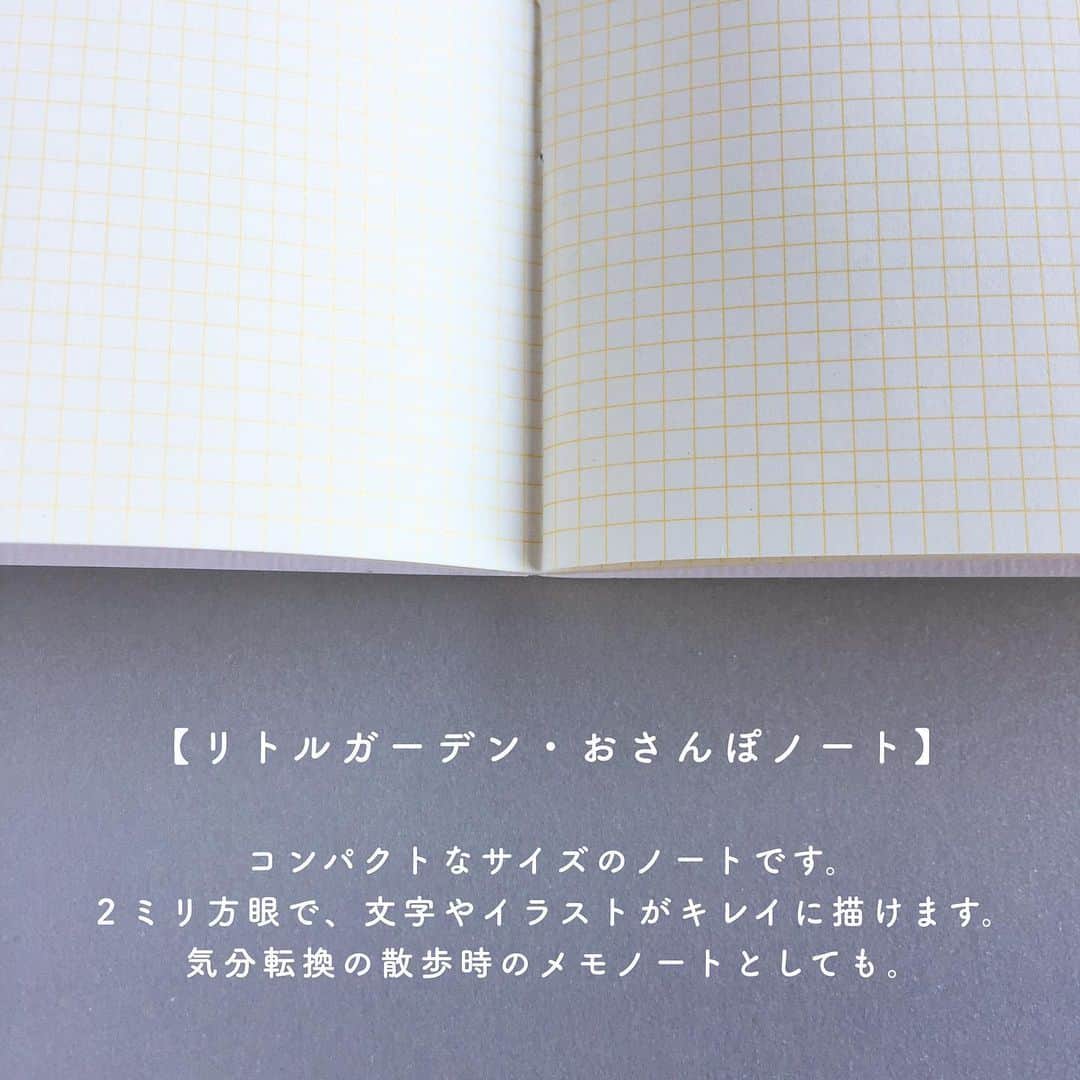 【リトルガーデン・おさんぽノート】
コンパクトなサイズのノートです。
２ミリ方眼で、文字やイラストがキレイに描けます。
気分転換の散歩時のメモノートとしても。